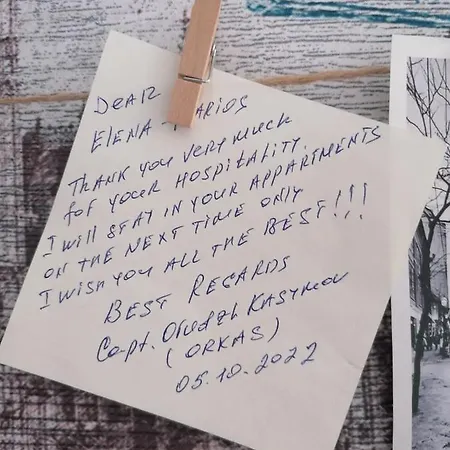 DEAR
ELENA + MARIOS
THANK YOU VERY MUCH
FOR YOUR HOSPITALITY.
I WILL STAY IN YOUR APPARTMENTS
ON THE NEXT TIME ONLY
I WISH YOU ALL THE BEST!!!
BEST REGARDS
Capt. ORUDZH KASYMOV
(ORKAS)
05.10.2022